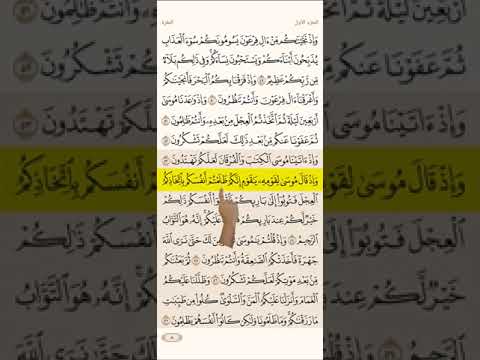 الجزء الأول البقرة
وَإِذْ نَجَّيْنَٰكُم مِّنْ ءَالِ فِرْعَوْنَ يَسُومُونَكُمْ سُوٓءَ ٱلْعَذَابِ
يُذَبِّحُونَ أَبْنَآءَكُمْ وَيَسْتَحْيُونَ نِسَآءَكُمْ وَفِى ذَٰلِكُم بَلَآءٌ
مِّن رَّبِّكُمْ عَظِيمٌ ٤٩ وَإِذْ فَرَقْنَا بِكُمُ ٱلْبَحْرَ فَأَنجَيْنَٰكُمْ
وَأَغْرَقْنَآ ءَالَ فِرْعَوْنَ وَأَنتُمْ تَنظُرُونَ ٥٠ وَإِذْ وَٰعَدْنَا مُوسَىٰٓ
أَرْبَعِينَ لَيْلَةً ثُمَّ ٱتَّخَذْتُمُ ٱلْعِجْلَ مِنۢ بَعْدِهِۦ وَأَنتُمْ ظَٰلِمُونَ ٥١
ثُمَّ عَفَوْنَا عَنكُم مِّنۢ بَعْدِ ذَٰلِكَ لَعَلَّكُمْ تَشْكُرُونَ ٥٢
وَإِذْ ءَاتَيْنَا مُوسَى ٱلْكِتَٰبَ وَٱلْفُرْقَانَ لَعَلَّكُمْ تَهْتَدُونَ ٥٣
وَإِذْ قَالَ مُوسَىٰ لِقَوْمِهِۦ يَٰقَوْمِ إِنَّكُمْ ظَلَمْتُمْ أَنفُسَكُم بِٱتِّخَاذِكُمُ
ٱلْعِجْلَ فَتُوبُوٓا۟ إِلَىٰ بَارِئِكُمْ أَنفُسَكُمْ ذَٰلِكُمْ
خَيْرٌ لَّكُمْ عِندَ بَارِئِكُمْ عَلَيْكُمْ إِنَّهُۥ هُوَ ٱلتَّوَّابُ
ٱلرَّحِيمُ ٥٤ وَإِذْ قُلْتُمْ يَٰمُوسَىٰ لَكَ حَتَّىٰ نَرَى ٱللَّهَ
جَهْرَةً فَأَخَذَتْكُمُ ٱلصَّٰعِقَةُ وَأَنتُمْ تَنظُرُونَ ٥٥ ثُمَّ بَعَثْنَٰكُم
مِّنۢ بَعْدِ مَوْتِكُمْ لَعَلَّكُمْ تَشْكُرُونَ ٥٦ وَظَلَّلْنَا عَلَيْكُمُ
ٱلْغَمَامَ وَأَنزَلْنَا عَلَيْكُمُ ٱلْمَنَّ وَٱلسَّلْوَىٰ كُلُوا۟ مِن طَيِّبَٰتِ
مَا رَزَقْنَٰكُمْ وَمَا ظَلَمُونَا وَلَٰكِن كَانُوٓا۟ أَنفُسَهُمْ يَظْلِمُونَ ٥٧
٨